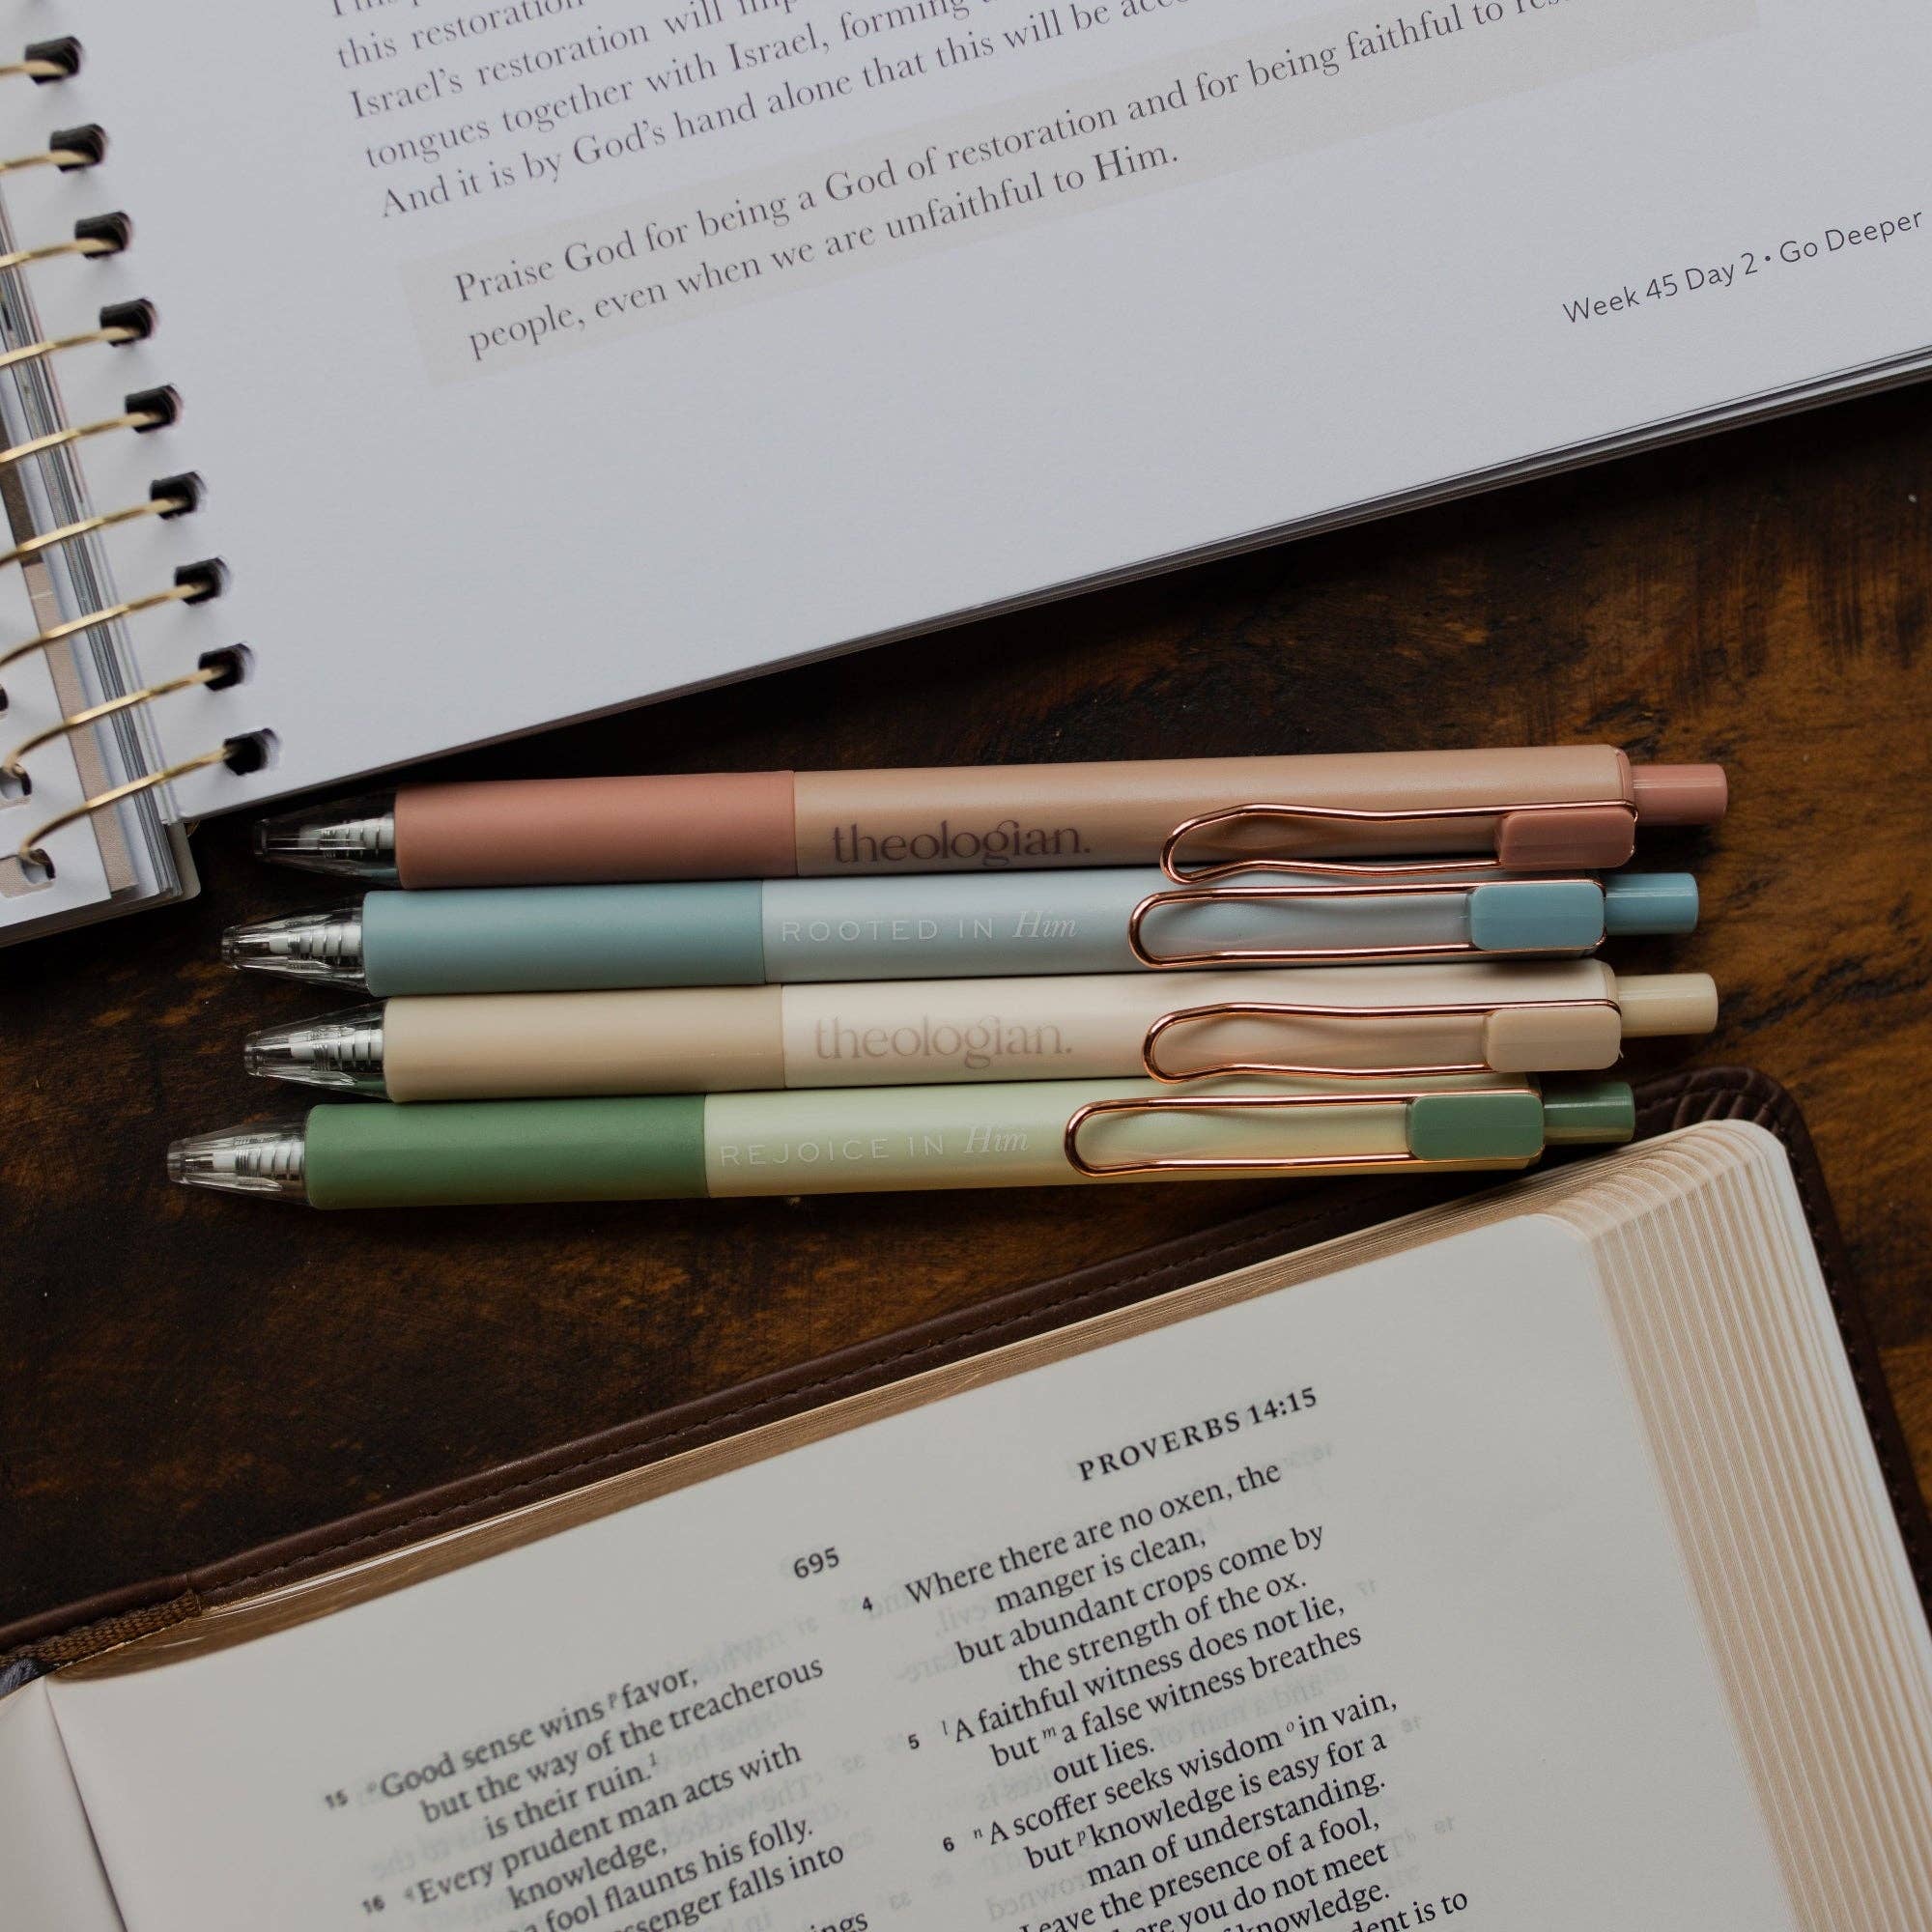 this restoration
Israel's restoration will
tongues together with Israel, forming
And it is by God's hand alone that this will be
Praise God for being a God of restoration and for being faithful to
people, even when we are unfaithful to Him.
Week 45 Day 2 • Go Deeper
theologian.
ROOTED IN Him
theologian.
REJOICE IN Him
695
PROVERBS 14:15
15 Good sense wins p favor,
but the way of the treacherous
is their ruin.1
16 Every prudent man acts with
knowledge,
fool flaunts his folly.
falls into
4 Where there are no oxen, the
manger is clean,
but abundant crops come by
the strength of the ox.
5 l A faithful witness does not lie,
but m a false witness breathes
out lies.
6 n A scoffer seeks wisdom o in vain,
but p knowledge is easy for a
man of understanding.
Leave the presence of a fool,
you do not meet
knowledge.
is to